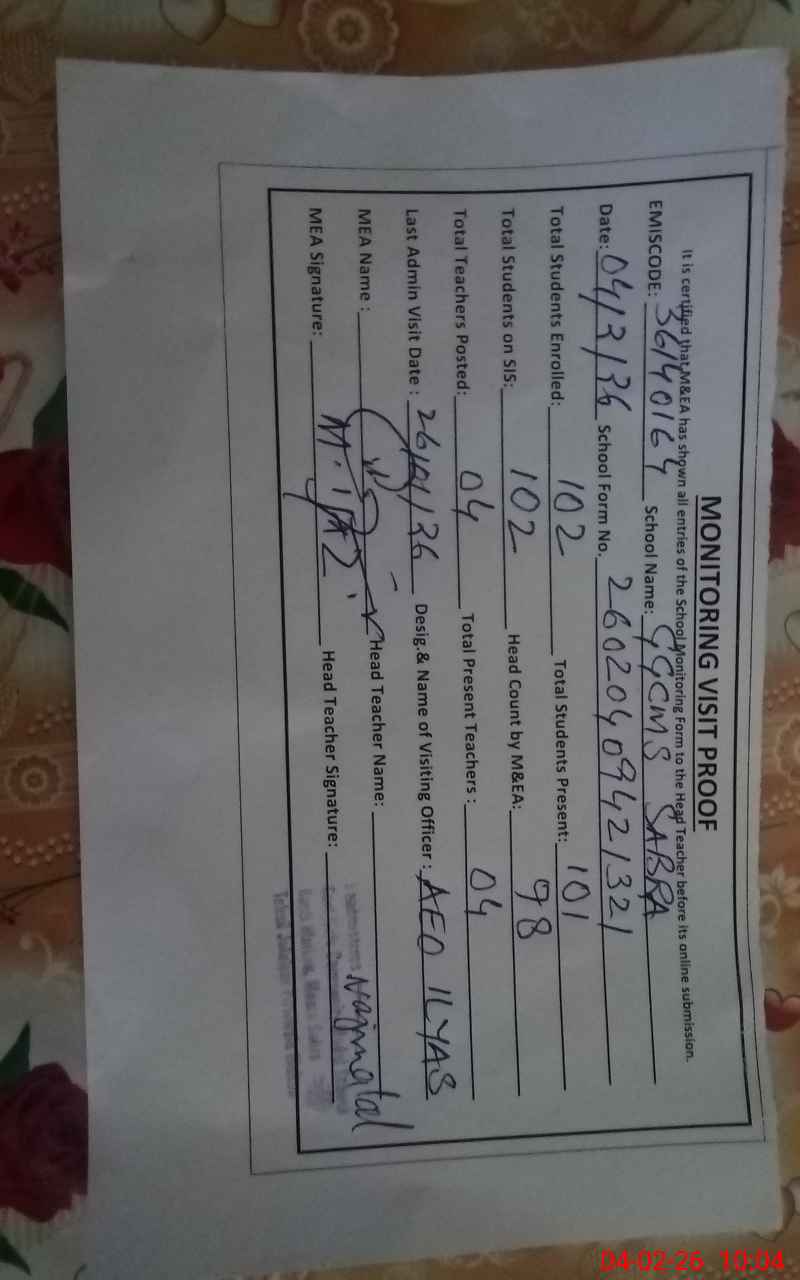 MONITORING VISIT PROOF
It is certified that M&EA has shown all entries of the School Monitoring Form to the Head Teacher before its online submission.
EMISCODE: 36140164 School Name: GGCMS SABRA
Date: 04/2/26 School Form No. 26020409421321
Total Students Enrolled: 102 Total Students Present: 101
Total Students on SIS: 102 Head Count by M&EA: 98
Total Teachers Posted: 04 Total Present Teachers : 04
Last Admin Visit Date : 26/01/26 Desig.& Name of Visiting Officer : AEO ILYAS
MEA Name : Head Teacher Name:
MEA Signature: Head Teacher Signature:
04-02-26 10:04